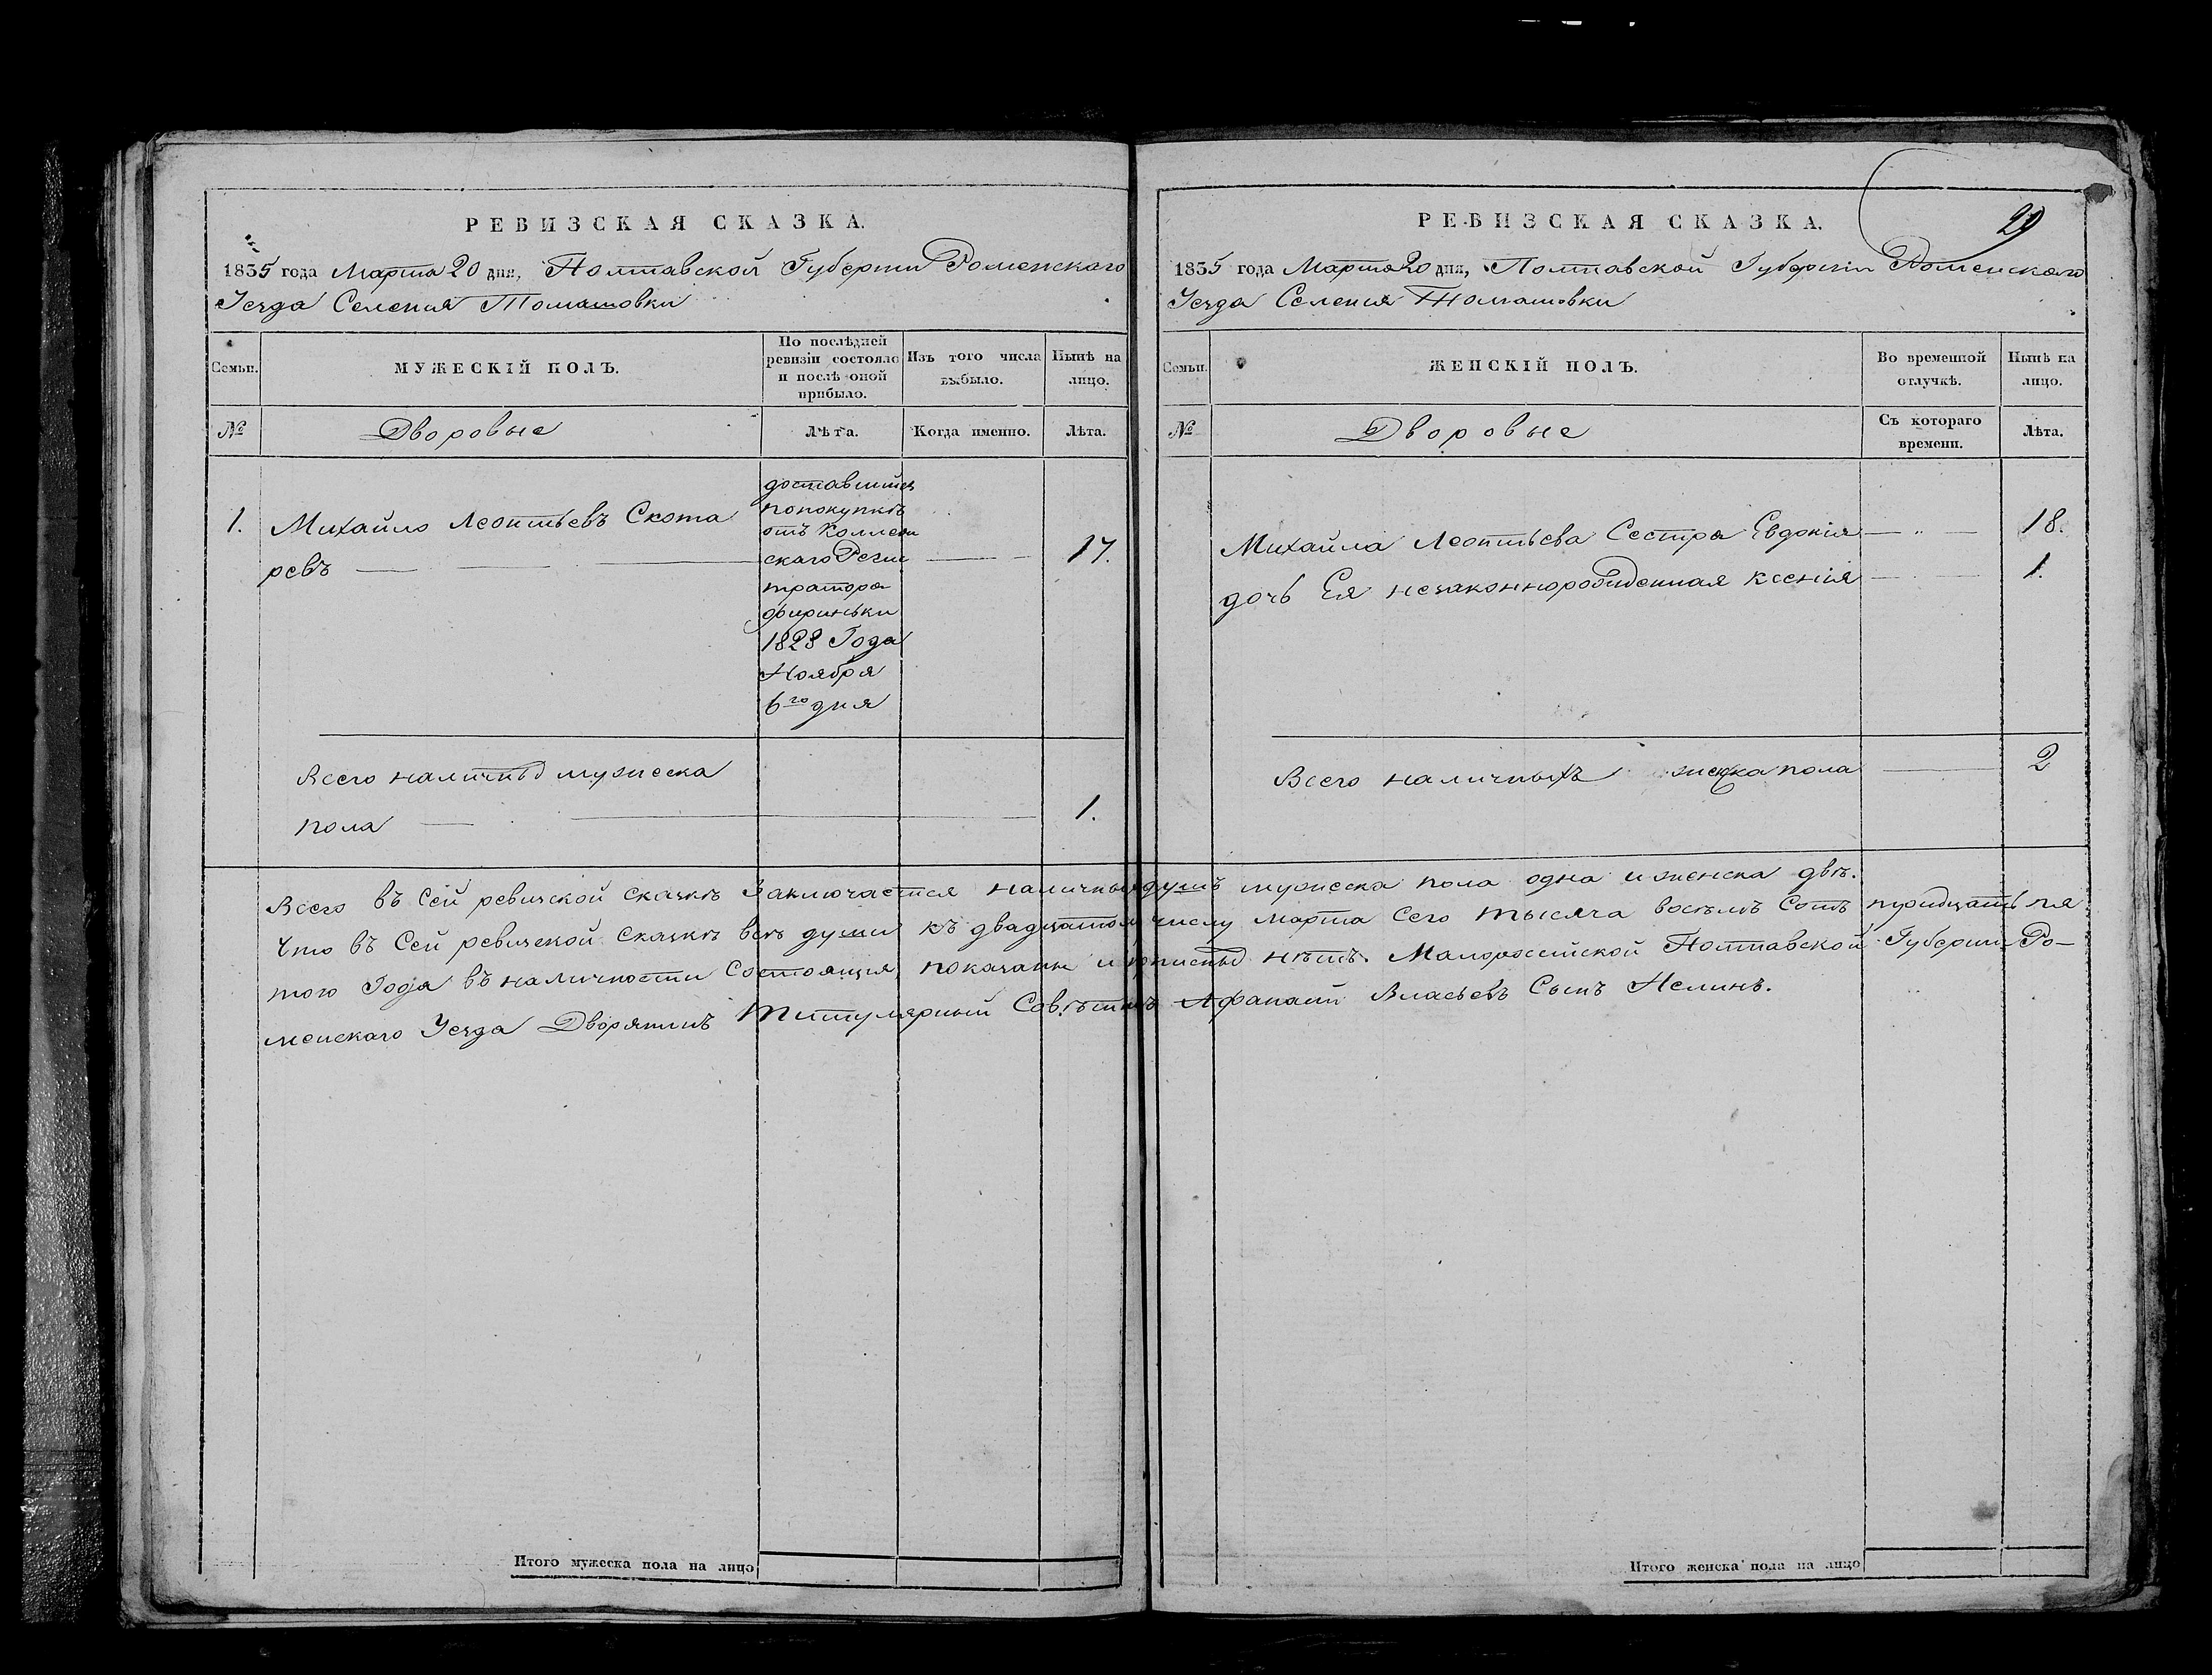 РЕВИЗСКАЯ СКАЗКА.
1835 года Марта 20 дня, Полтавской Губернии Роменского
Уезда Селения Томашовки
Семьи.
МУЖЕСКІЙ ПОЛЪ.
По послѣдней
ревизіи состояло
и послѣ оной
прибыло.
Изъ того числа
выбыло.
Нынѣ на
лицо.
№
Дворовые
Лѣта.
Когда именно.
Лѣта.
1.
Михайло Леонтьевъ Скота
ревъ
доставшийся
по покупкѣ
отъ Коллеж
скаго Реги
тратора
1828 Года
Ноября
6го дня
17.
Всего наличныхъ мужеска
пола
1.
РЕВИЗСКАЯ СКАЗКА.
29
1835 года Марта 20 дня, Полтавской Губерніи Роменского
Уезда Селения Томашовки
Семьи.
ЖЕНСКІЙ ПОЛЪ.
Во временной
отлучкѣ.
Нынѣ на
лицо.
№
Дворовые
Съ котораго
времени.
Лѣта.
Михайла Леонтьева Сестра Евдокія
18.
дочь Ея незаконнорожденная Ксенія
1.
Всего наличныхъ женска пола
2
Всего въ Сей ревизской сказкѣ Заключается наличныхъ душъ мужеска пола одна и женска двѣ.
Что въ Сей ревизской сказкѣ всѣ души къ двадцатому числу марта сего тысяча восемъ сотъ тридцать пя
того Года въ наличности Состоящия, показаны и прописныхъ нѣтъ. Малороссийской Полтавской Губернии Ро-
менскаго Уезда Дворянинъ Титулярный Совѣтникъ Афанасий Власьевъ Сынъ
Итого мужеска пола на лицо
Итого женска пола на лицо